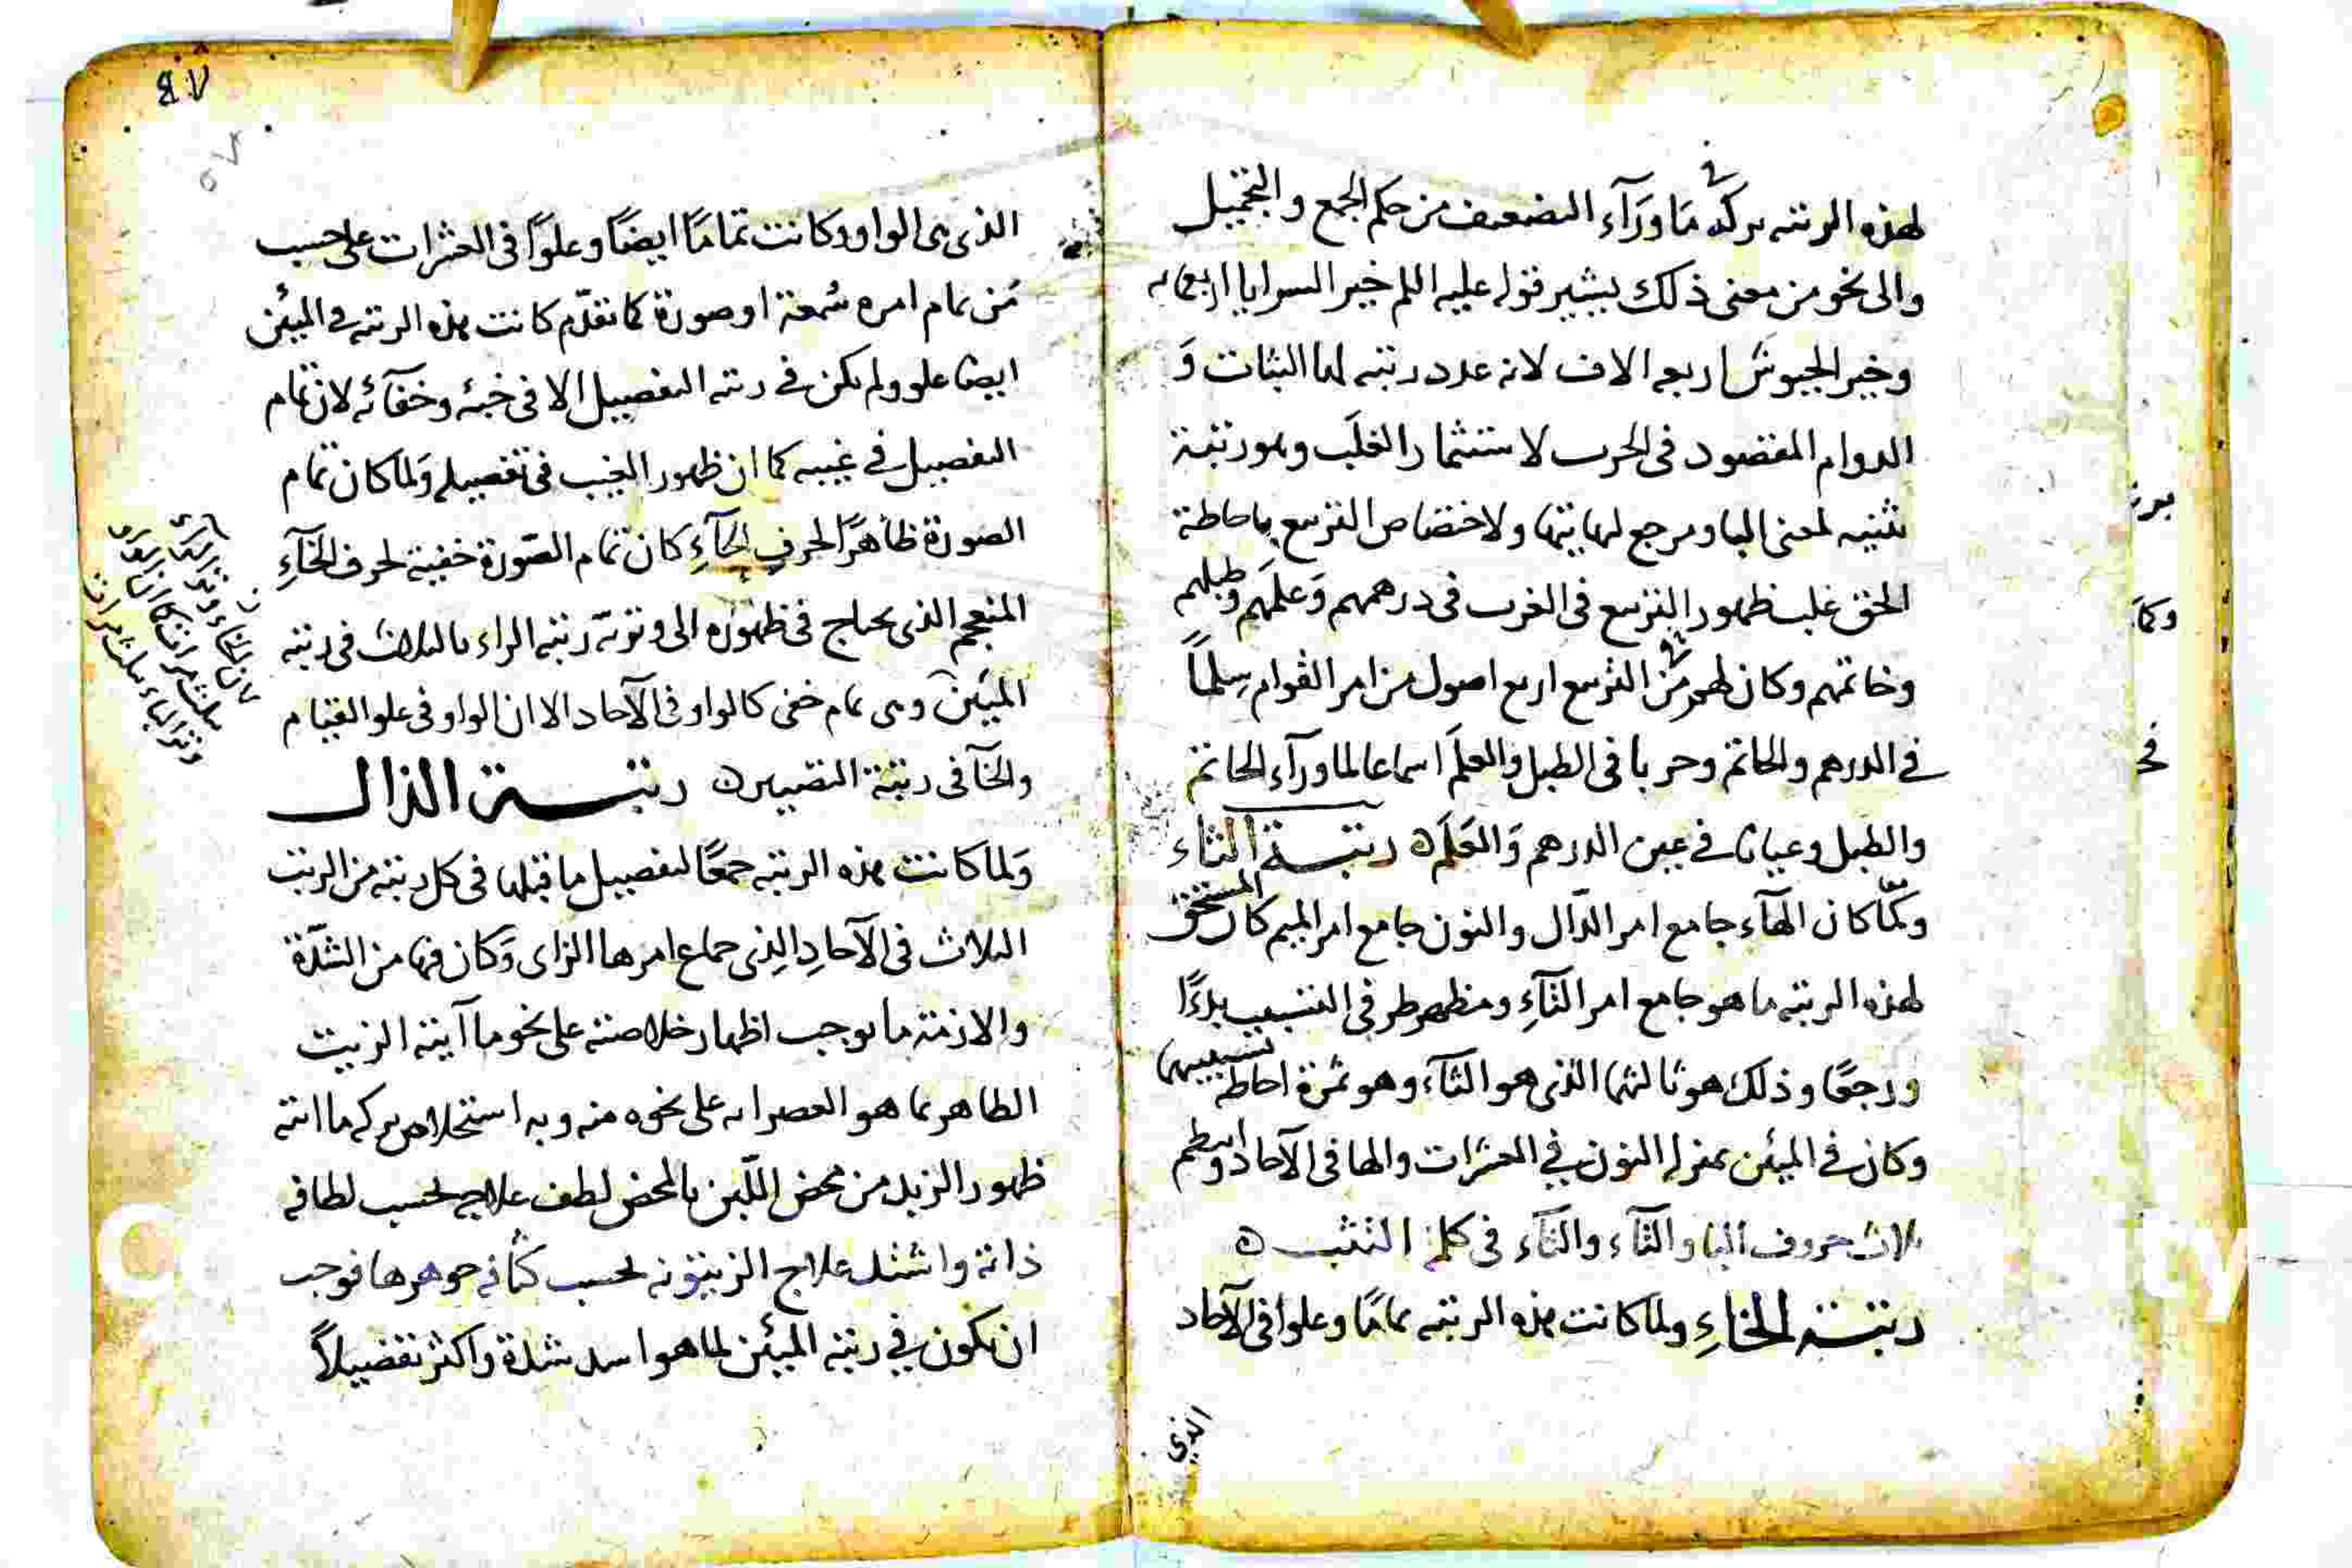 لهذه الرتبه بركة ما ورآء التضعيف من حكم الجمع والتجميل
والى نحو من معنى ذلك يشير قوله عليه السلم خير السرايا اربعمايه
وخير الجيوش اربعه الاف لانه عدد رتبته لها الثبات و
الدوام المقصود فى الحرب لاستثمار الغلب وهو رتبة
تثنيه لمعنى البا ومرجع لنهايتها ولاختصاص التربيع باحاطة
الخق غلب ظهور التربيع فى الغرب فى درهمهم وعلمهم وطبلهم
وخاتمهم وكان ظهور من التربيع اربع اصول من امر القوام سلما
في الدرهم والخاتم وحربا فى الطبل والعلم اسماعا لما ورآء الخاتم
والطبل وعيانا في عين الدرهم والعلم ه رتبة الثاء
ولما كان الهآء جامع امر الدال والنون جامع امر الميم كان المستحق
لهذه الرتبه ما هو جامع امر التآء ومظهر طرفى التسبيب بدءًا
ورجعًا وذلك هو ثالثهما الذى هو الثآء وهو ثمرة احاطة تسبيبهما
وكان في الميئن بمنزله النون في العشرات والها فى الآحاد وانتظم
ثلاث حروف البا والتآء والثآء فى كلمة التثبت ه
رتبة الخاء ولما كانت هذه الرتبه تمامًا وعلوا فى الآحاد
الذي
الذى هى الواو وكانت تمامًا ايضًا وعلوًا فى العشرات على حسب
من تمام امره سمعة او صورة كما تقدّم كانت هذه الرتبه في الميئن
ايضا علو ولم يكن في رتبه التفصيل الا فى خبئه وخفآئه لان تمام
التفصيل في غيبه كما ان ظهور الغيب فى تفصيله ولما كان تمام
الصورة ظاهرًا لحرف الحآء كان تمام الصورة خفية لحرف الخآء
المنعجم الذى يحتاج فى ظهوره الى وتريّة رتبه الراء بالثلاث فى رتبه
الميئين وهى تمام خفى كالواو فى الآحاد الا ان الواو فى علو القيام
والخآ فى رتبة التصيير ه رتبة الذال
ولما كانت هذه الرتبه جمعًا لتفصيل ما قبلها فى كل رتبه من الرتب
الثلاث فى الآحاد الذى جماع امرها الزاى وكان فيها من الشدّة
والازمة ما يوجب اظهار خلاصته على نحو ما آيته الزيت
الظاهر بما هو العصر ابه على نحوه منه وبه استخلاص بركه ما انته
ظهور الزبد من محض اللبن بالمخض لطف علاجه بحسب لطافه
ذاته واشتد علاج الزيتونه بحسب كثافه جوهرها فوجب
ان يكون في رتبه الميئن لما هو اسد شدة واكثر تفصيلاً